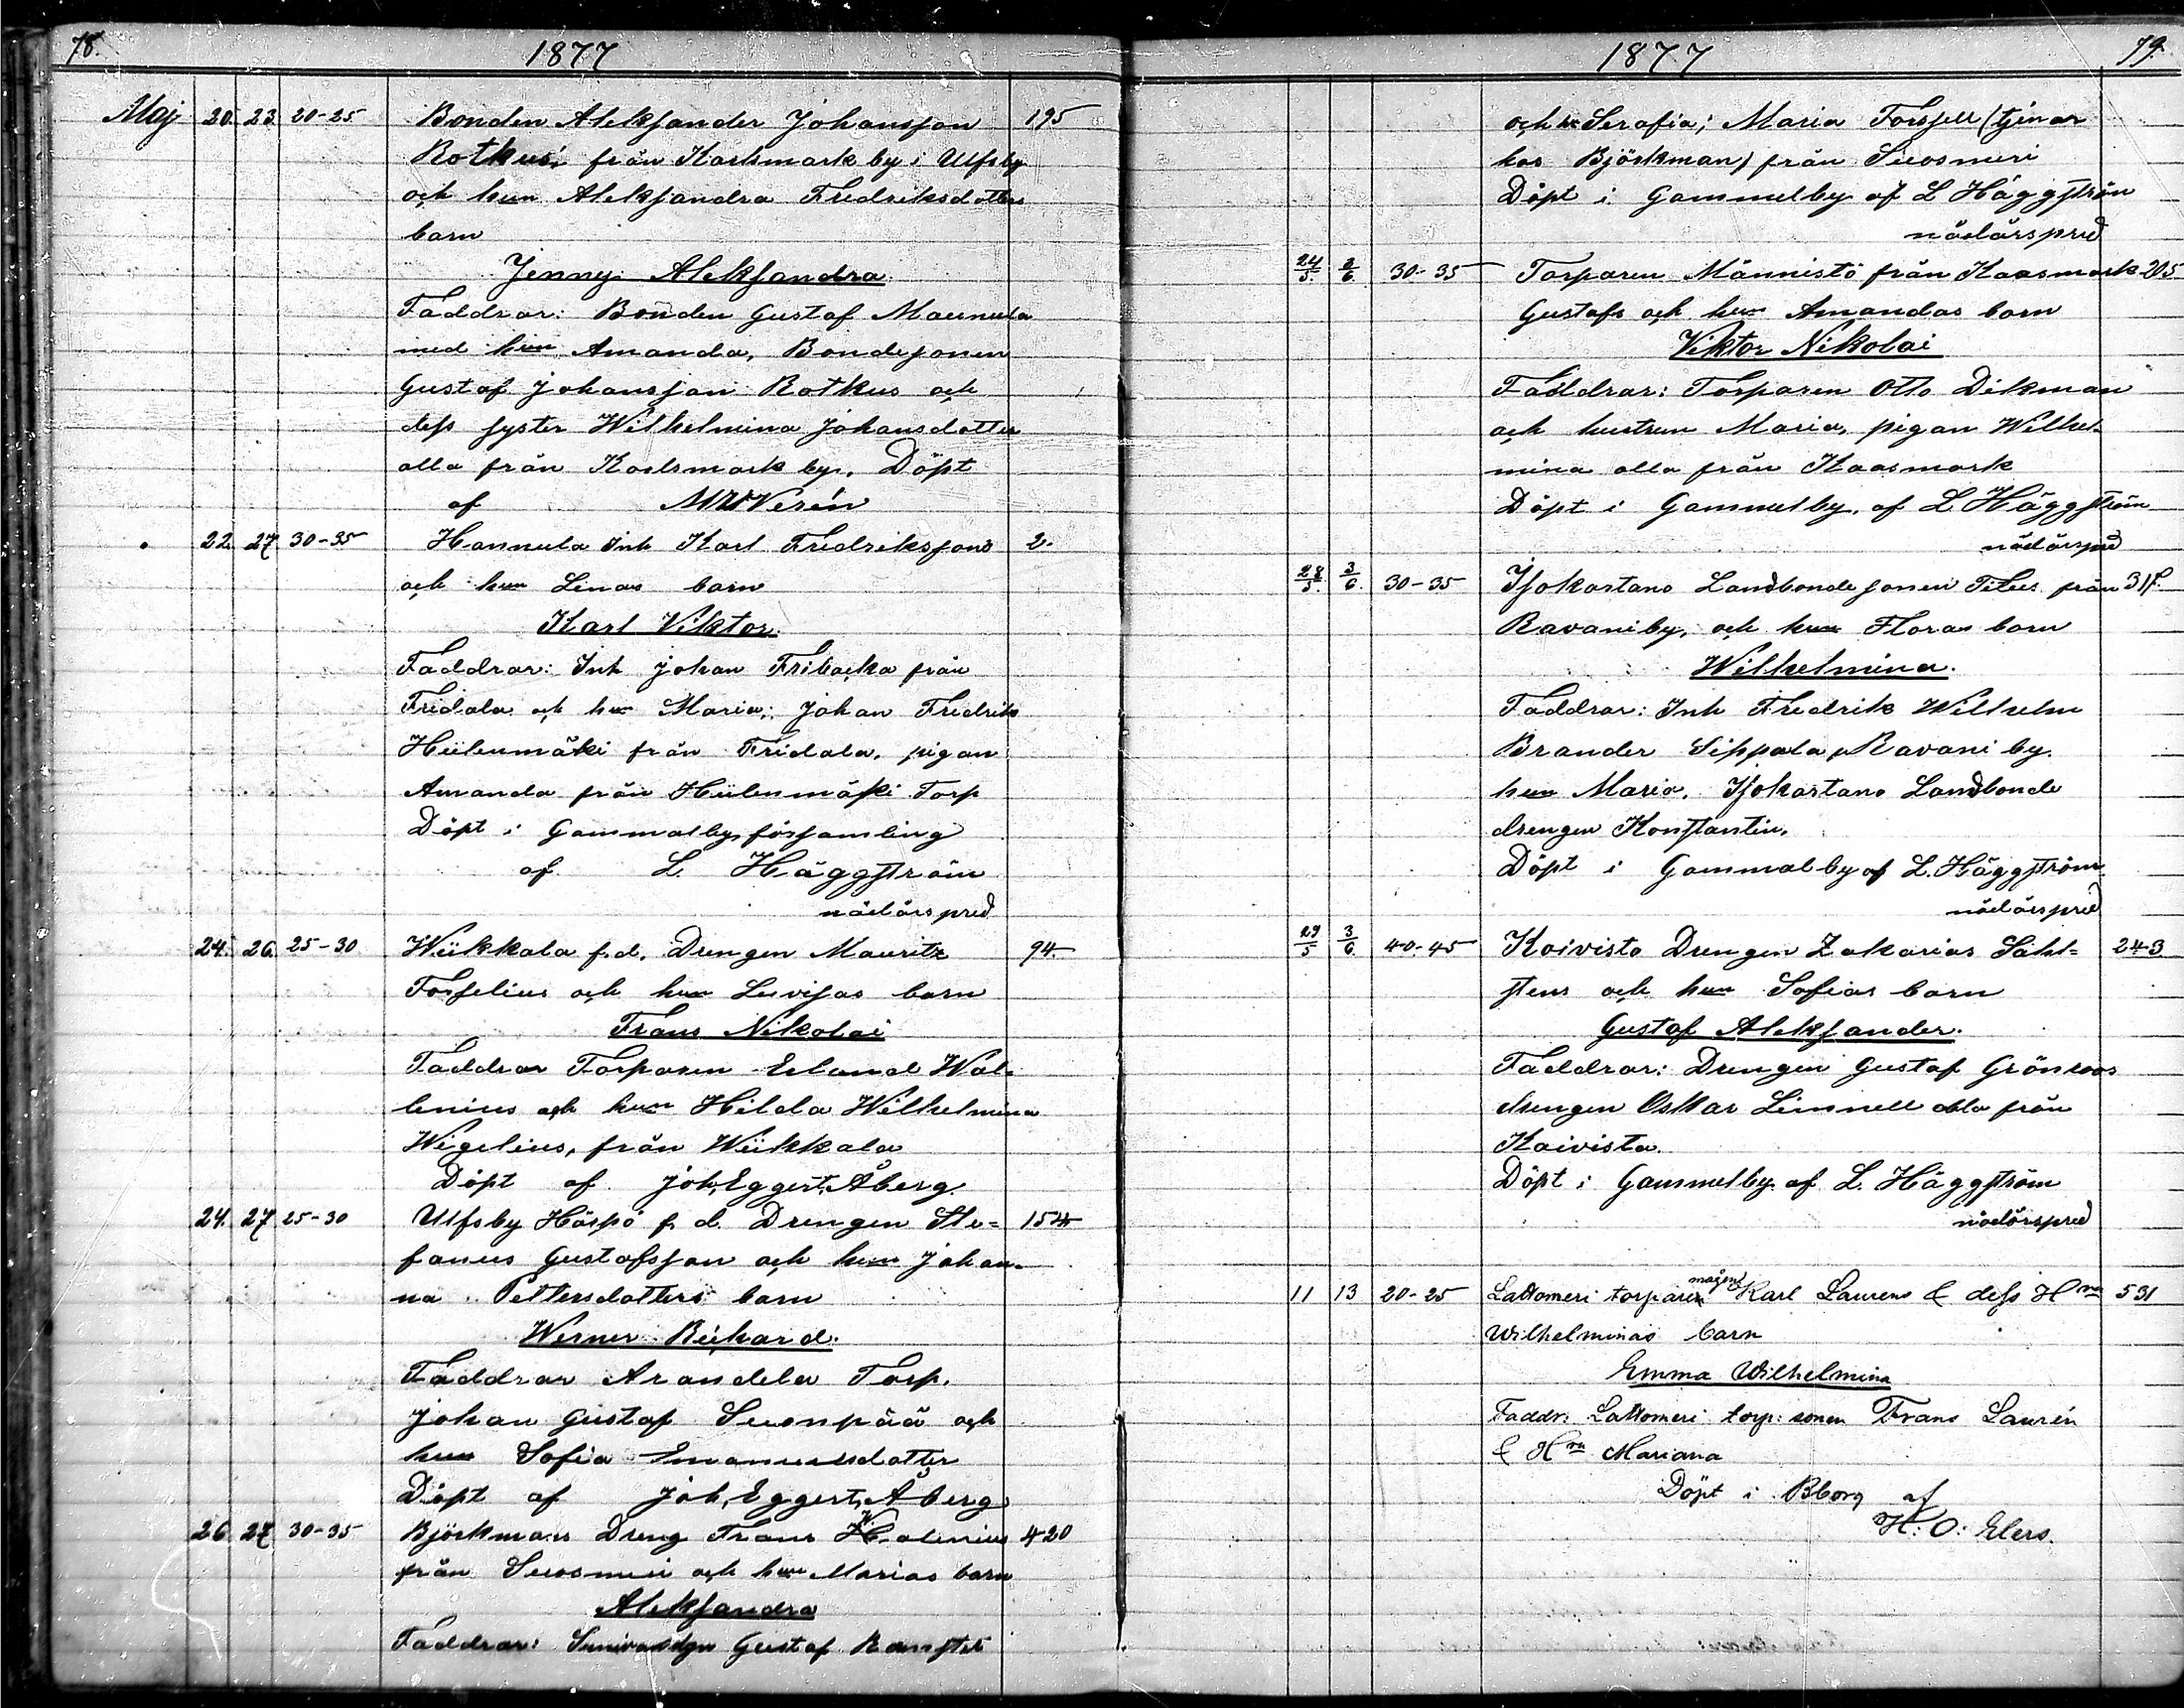 78.
1877
Maj 20. 23. 20-25 Bonden Aleksander Johansson 195
Rotkus, från Karlsmark by i Ulfsby
och hun Aleksandra Fredriksdotters
barn
Jenny Aleksandra
Faddrar: Bonden Gustaf Maunula
med hun Amanda, Bondesonen
Gustaf Johansson Rotkus och
dess syster Wilhelmina Johansdotter
alla från Karlsmark by. Döpt
af
22. 27. 30-35 Hannula Inh Karl Fredrikssons 2.
och hun Linas barn
Karl Viktor.
Faddrar: Inh Johan Fribacka från
Fridala och hun Maria; Johan Fredrik
från Fridala, pigan
Amanda från Torp
Döpt i Gammalby församling
af L. Häggström
nödårspred
24. 26. 25-30 Wiikkala f.d. Drengen Mauritz 94.
Forselius och hun Lovisas barn
Frans Nikolai
Faddrar Torparen Erland Wal-
lenius och hun Hilda Wilhelmina
Wigelius, från Wiikkala
Döpt af Joh. Eggert. Åberg.
24. 27 25-30 Ulfsby Härpö f. d. Drengen Ste- 154
fanus Gustafsson och hun Johan-
na Pettersdotters barn
Werner Rickard.
Faddrar Arandela Torp.
Johan Gustaf Suonpää och
hun Sofia Emanuelsdotter
Döpt af Joh. Eggert. Åberg
26. 27. 30-35 Björkmans Dreng Frans 420
från Suosmeri och hun Marias barn
Aleksandra
Faddrar: Gustaf

1877
79.
och Serafia; Maria Forssell (tjenar
hos Björkman) från Suosmeri
Döpt i Gammelby af L Häggström
nödårspred
24/5. 2/6. 30-35 Torparen Männistö från Kaasmark 205
Gustafs och hun Amandas barn
Viktor Nikolai
Faddrar: Torparen Otto Dikman
och hustrun Maria, pigan Wilhel-
mina alla från Kaasmark
Döpt i Gammelby. af L Häggström
nödårspred
28/5. 3/6. 30-35 Isokartano Landbondesonen Titus från
Ravaniby, och hun Floras barn
Wilhelmina.
Faddrar: Inh Fredrik Wilhelm
Brander Sippola, Ravani by.
hun Maria. Isokartano Landbonde
drengen Konstantin.
Döpt i Gammalby af L. Häggström
nödårspred
29/5 3/6. 40-45 Koivisto Drengen Zakarias Sahl= 243
stens och hun Sofias barn
Gustaf Aleksander.
Faddrar: Drengen Gustaf Grönroos
drengen Oskar Limnell alla från
Koivisto.
Döpt i Gammelby. af L. Häggström
nödårspred
11 13 20-25 Lattomeri torparen mågen Karl Laurens & dess Hru 531
Wilhelminas barn
Emma Wilhelmina
Faddr: Lattomeri torp: sonen Frans Laurén
& Hru Mariana
Döpt i Bborg af
H: O: Elers.